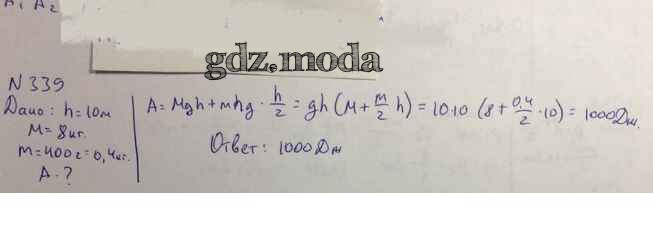 A₁ A₂
gdz.moda
N 339
Дано: h = 10м
M = 8кг.
m = 400г = 0,4кг.
A - ?
A = Mgh + mhg · h/2 = gh (M + m/2 h) = 10·10 (8 + 0,4/2 · 10) = 1000Дж.
Ответ: 1000Дж